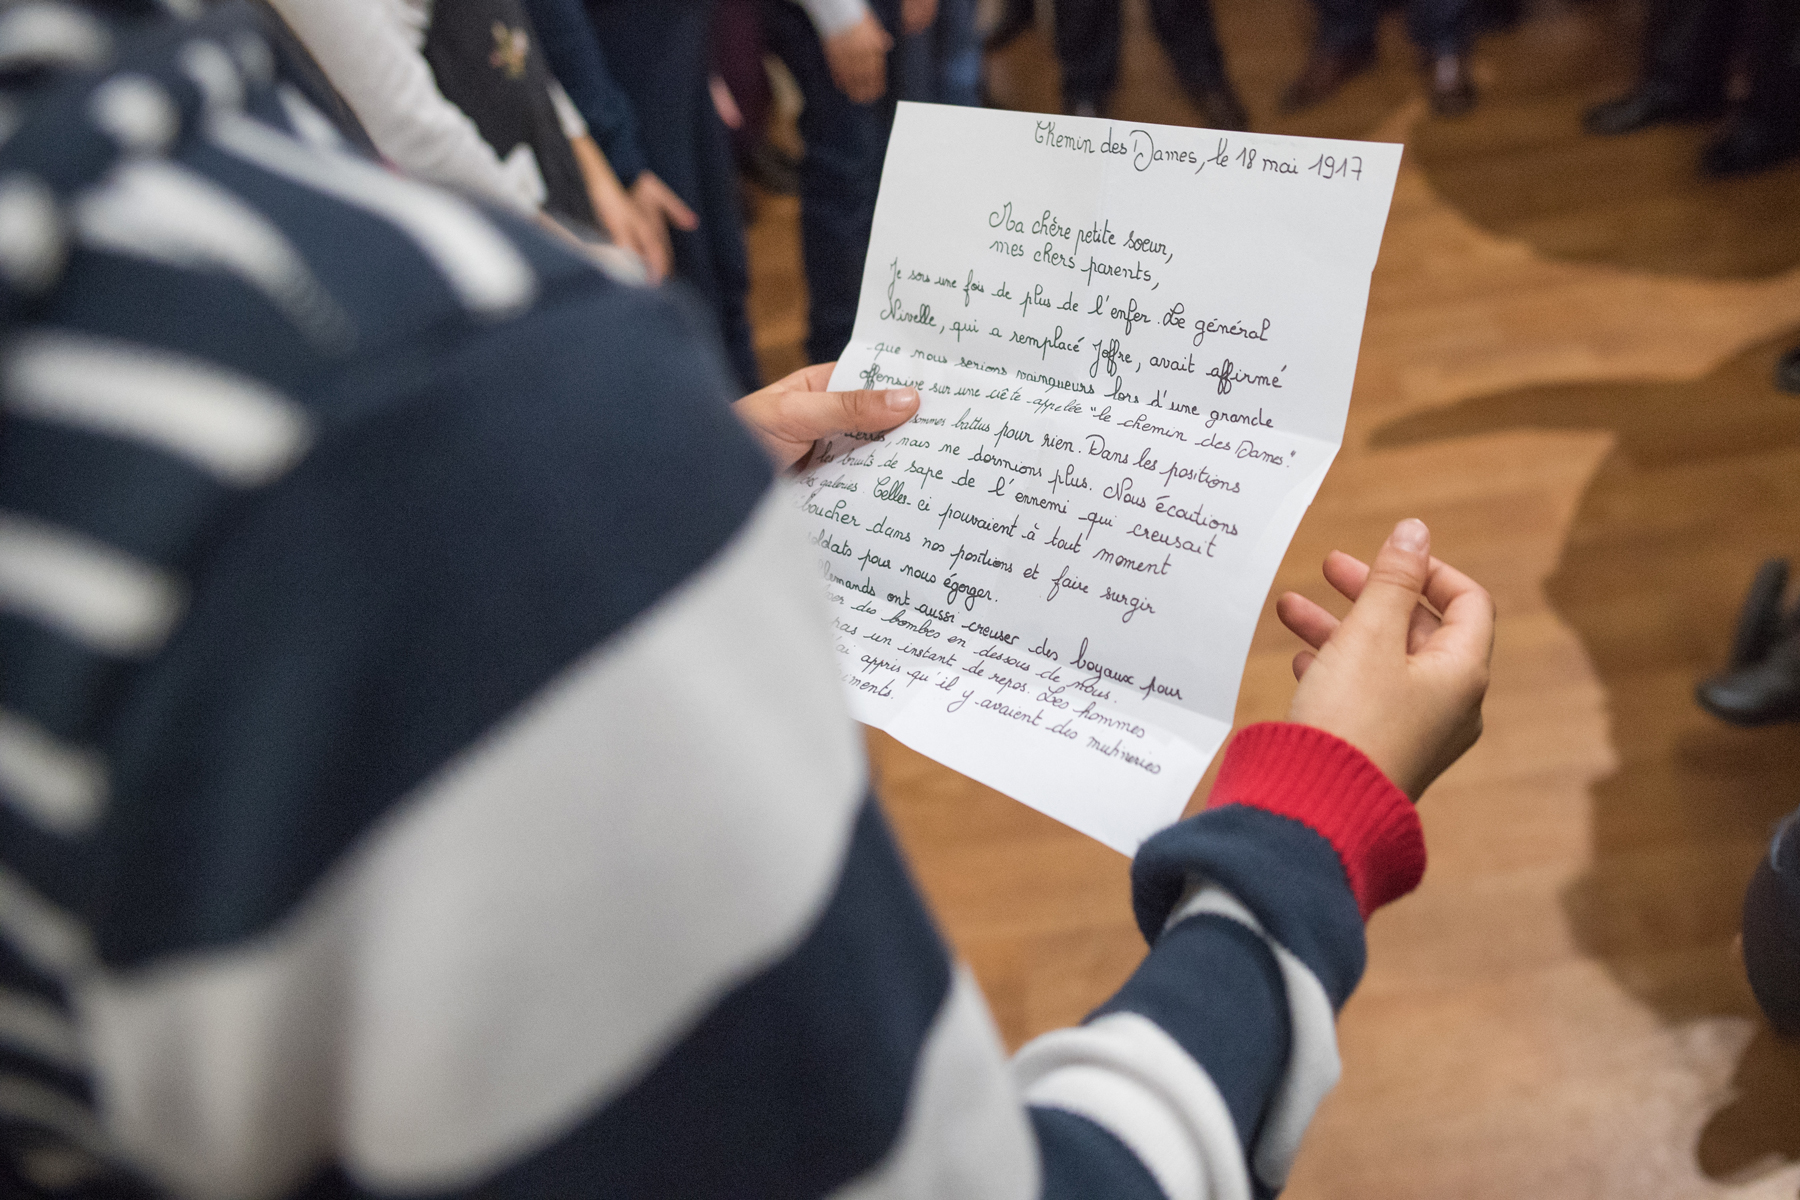 Chemin des Dames, le 18 mai 1917
Ma chère petite soeur,
mes chers parents,
Je sors une fois de plus de l'enfer. Le général
Nivelle, qui a remplacé Joffre, avait affirmé
que nous serions vainqueurs lors d'une grande
offensive sur une crête appelée "le chemin des Dames."
sommes battus pour rien. Dans les positions
nous ne dormions plus. Nous écoutions
les bruits de sape de l'ennemi qui creusait
galeries. Celles-ci pouvaient à tout moment
boucher dans nos positions et faire surgir
soldats pour nous égorger.
ont aussi creuser des boyaux pour
des bombes en dessous de nous.
pas un instant de repos. Les hommes
appris qu'il y avaient des mutineries